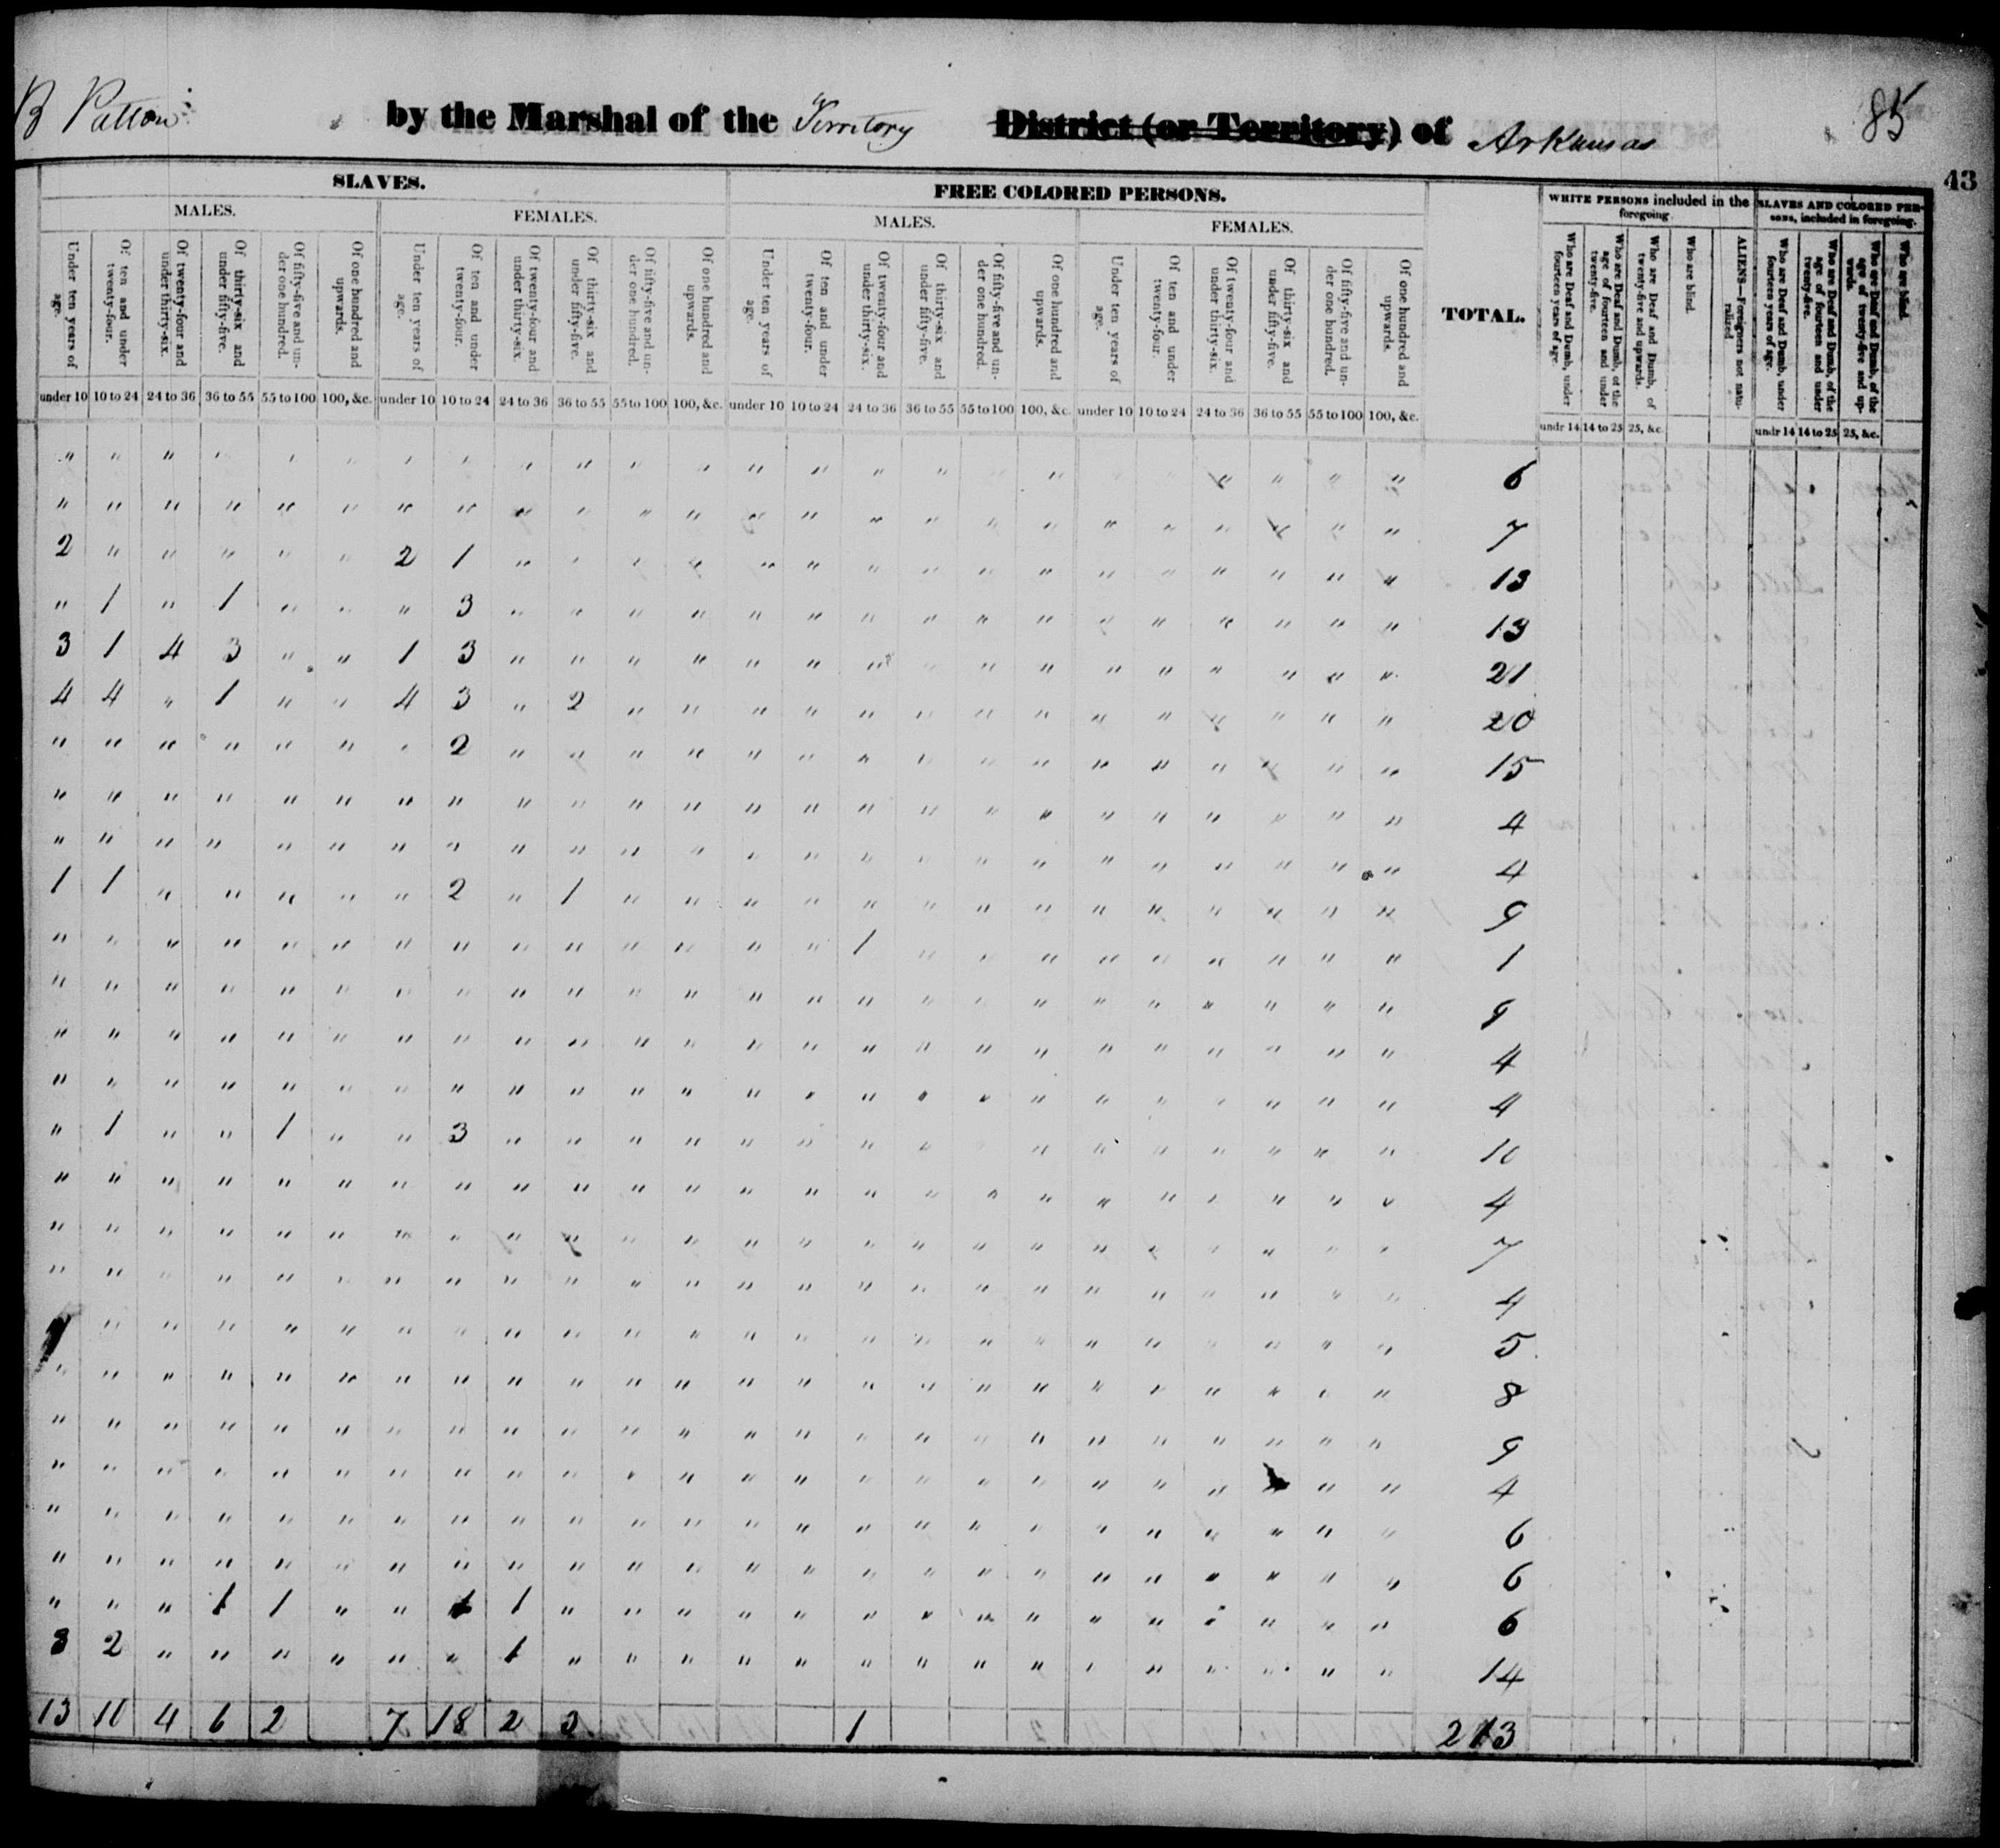 B Patton by the Marshal of the Territory District (or Territory) of Arkansas 85
43
SLAVES. FREE COLORED PERSONS. TOTAL. WHITE PERSONS included in the foregoing. SLAVES AND COLORED PERSONS, included in foregoing.
MALES. FEMALES. MALES. FEMALES.
Under ten years of age. Of ten and under twenty-four. Of twenty-four and under thirty-six. Of thirty-six and under fifty-five. Of fifty-five and under one hundred. Of one hundred and upwards. Under ten years of age. Of ten and under twenty-four. Of twenty-four and under thirty-six. Of thirty-six and under fifty-five. Of fifty-five and under one hundred. Of one hundred and upwards. Under ten years of age. Of ten and under twenty-four. Of twenty-four and under thirty-six. Of thirty-six and under fifty-five. Of fifty-five and under one hundred. Of one hundred and upwards. Under ten years of age. Of ten and under twenty-four. Of twenty-four and under thirty-six. Of thirty-six and under fifty-five. Of fifty-five and under one hundred. Of one hundred and upwards. Who are Deaf and Dumb, under fourteen years of age. Who are Deaf and Dumb, of the age of fourteen and under twenty-five. Who are Deaf and Dumb, of twenty-five and upwards. Who are blind. ALIENS—Foreigners not naturalized Who are Deaf and Dumb, under fourteen years of age. Who are Deaf and Dumb, of the age of fourteen and under twenty-five. Who are Deaf and Dumb, of the age of twenty-five and upwards. Who are blind.
under 10 10 to 24 24 to 36 36 to 55 55 to 100 100, &c. under 10 10 to 24 24 to 36 36 to 55 55 to 100 100, &c. under 10 10 to 24 24 to 36 36 to 55 55 to 100 100, &c. under 10 10 to 24 24 to 36 36 to 55 55 to 100 100, &c. undr 14 14 to 25 25, &c. undr 14 14 to 25 25, &c.
6
7
2 2 1 13
1 1 3 13
3 1 4 3 1 3 21
4 4 1 4 3 2 20
2 15
4
4
1 1 2 1 9
1 1
9
4
4
1 1 3 10
4
7
4
5
8
9
4
6
6
1 1 1 1 6
3 2 1 14
13 10 4 6 2 7 18 2 3 1 213